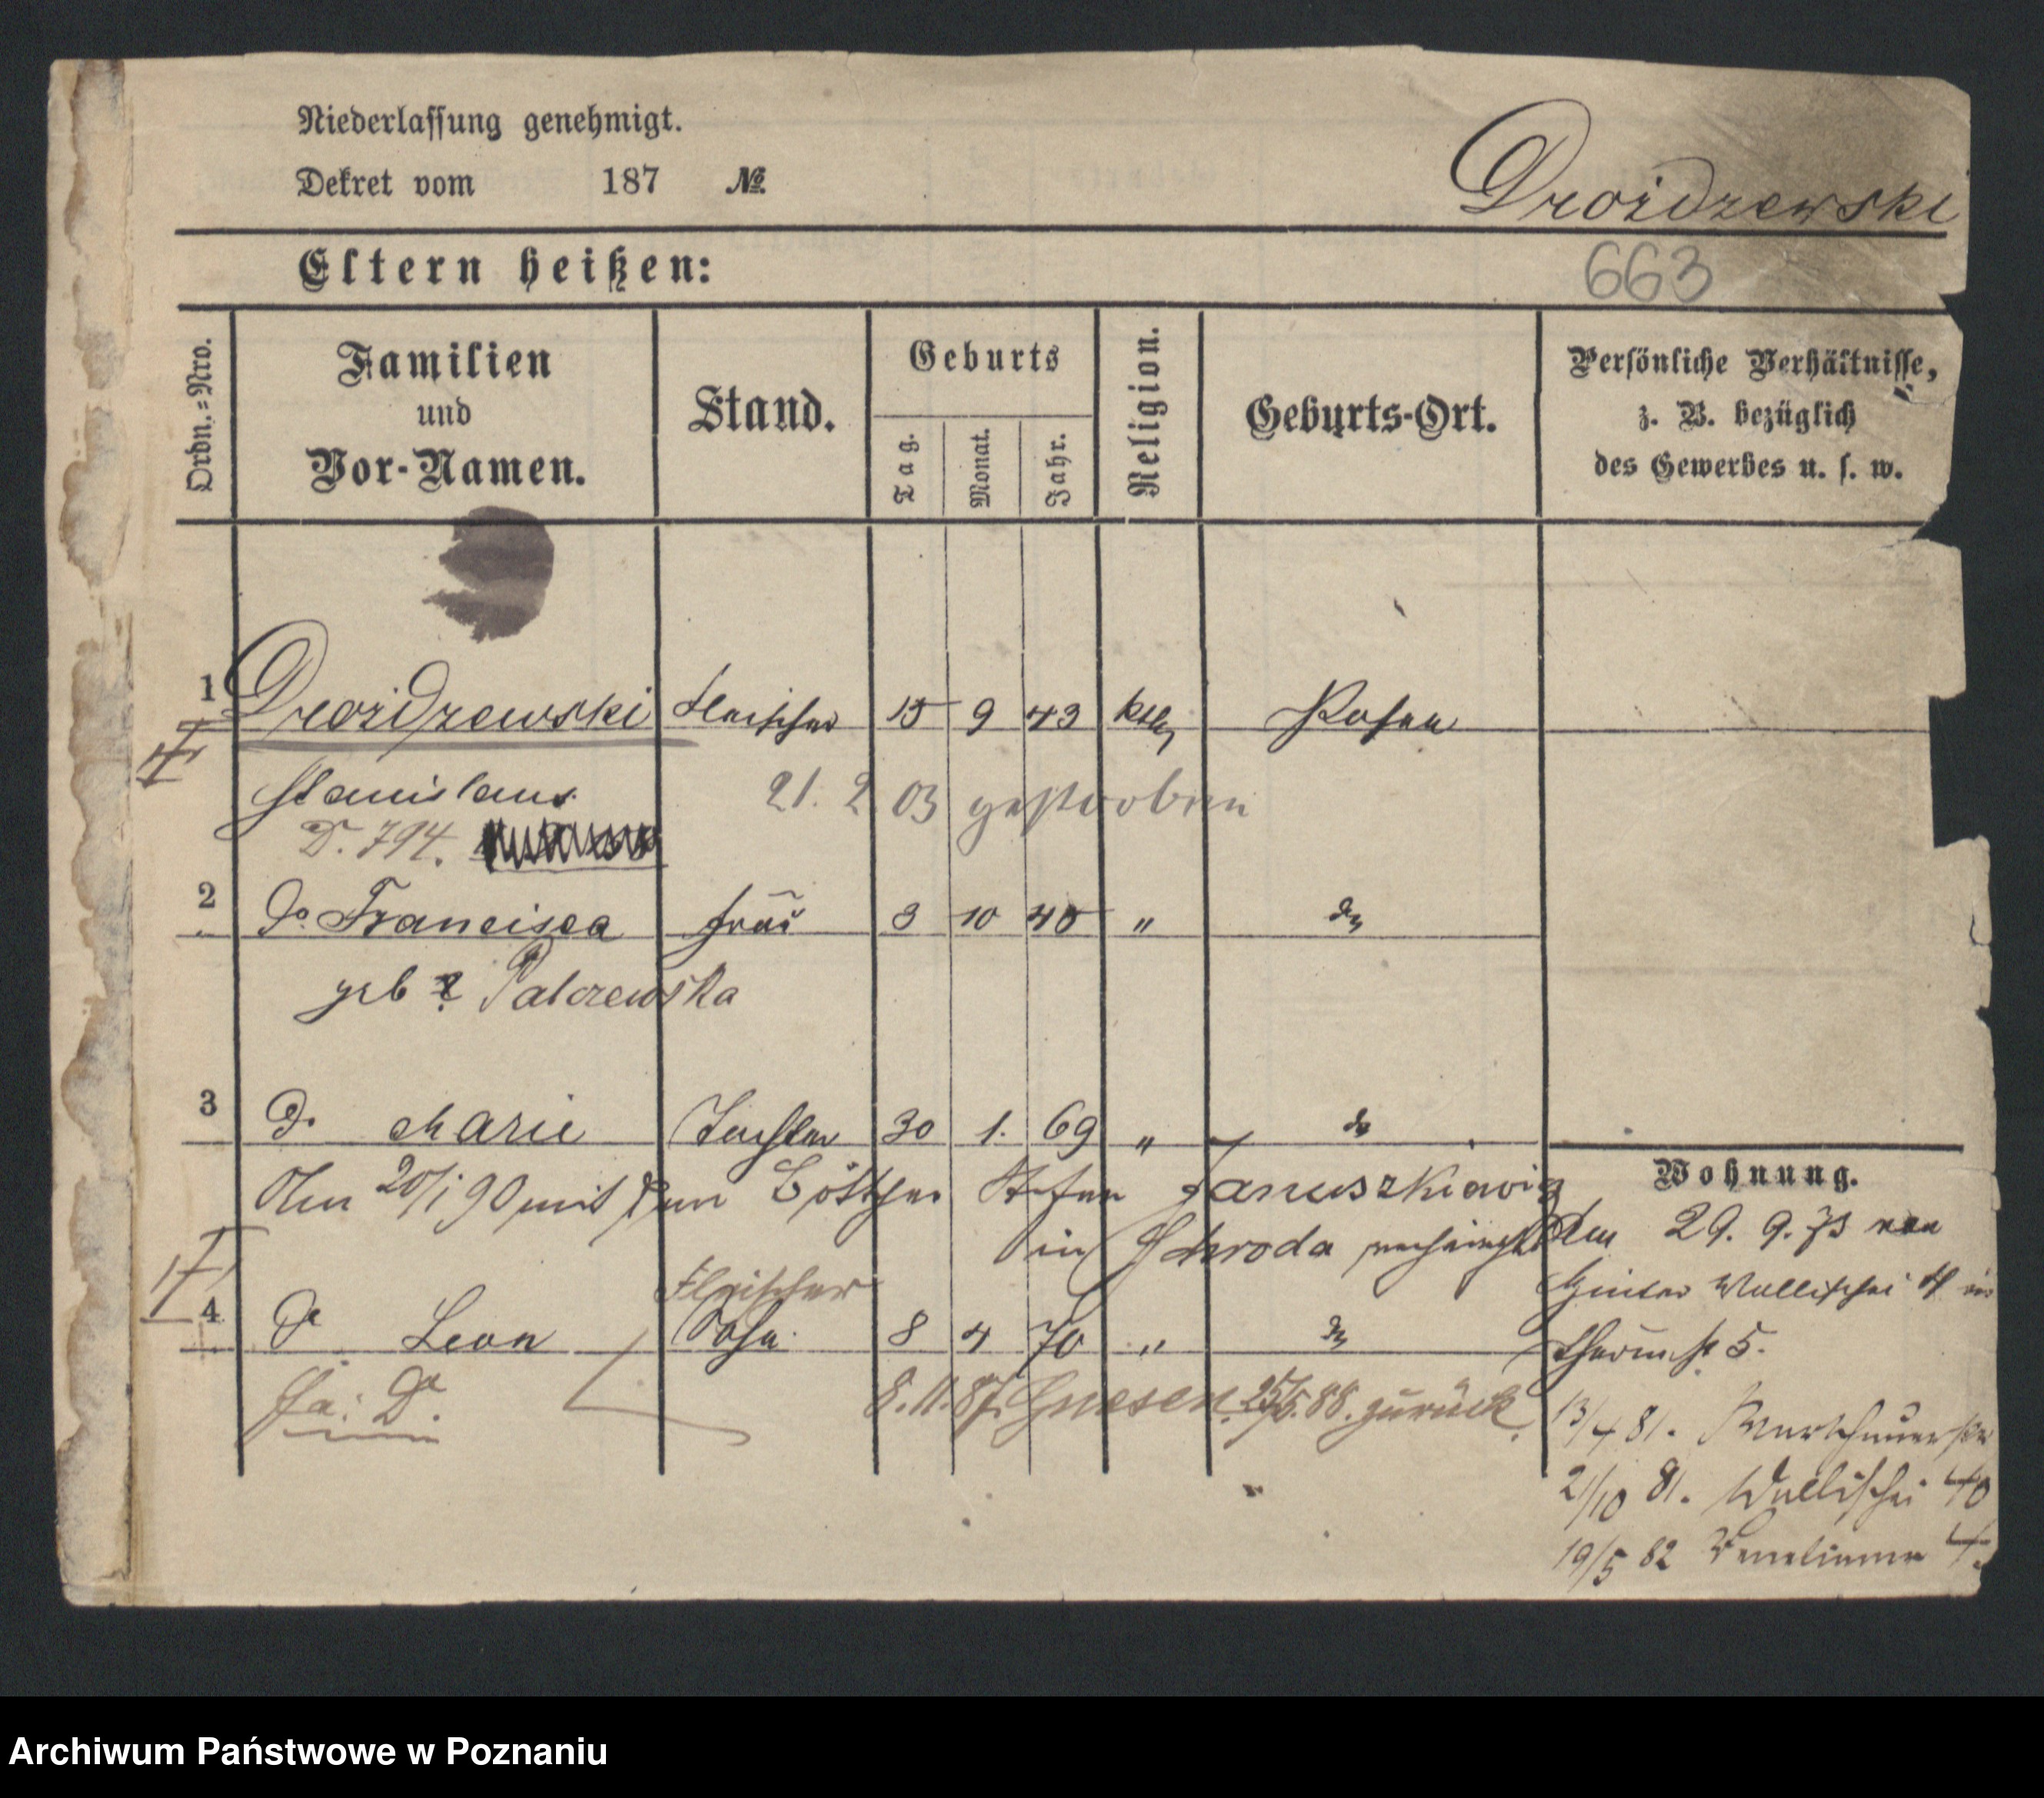 Niederlassung genehmigt.
Dekret vom 187 №
Drożdzewski
Eltern heißen:
663
Ordn.=Nro.
Familien
und
Vor-Namen.
Stand.
Geburts
Tag.
Monat.
Jahr.
Religion.
Geburts-Ort.
Persönliche Verhältnisse,
z. B. bezüglich
des Gewerbes u. s. w.
1 Drożdzewski Fleischer 15 9 43 kth Posen
Stanislaus
21. 2 03 gestorben
D. 794.
2 do Francisca Frau 3 10 40 " do
geb Palczewska
3 do Marie Tochter 30 1. 69 " do
Am 20/1 90 mit dem Böttcher Januszkiewicz
in Schroda verheirathet
Fleischer
4 do Leon Sohn 8 4 70 " do
Fa: D.
8. 11. 87. Gnesen. 25/5. 88. zurück.
Wohnung.
Am 29. 9. 73 von
hinter Wallischei 4 in
5.
13/4 81.
21/10 81. Wallischei 40
19/5 82 Venetianer 4.
Archiwum Państwowe w Poznaniu